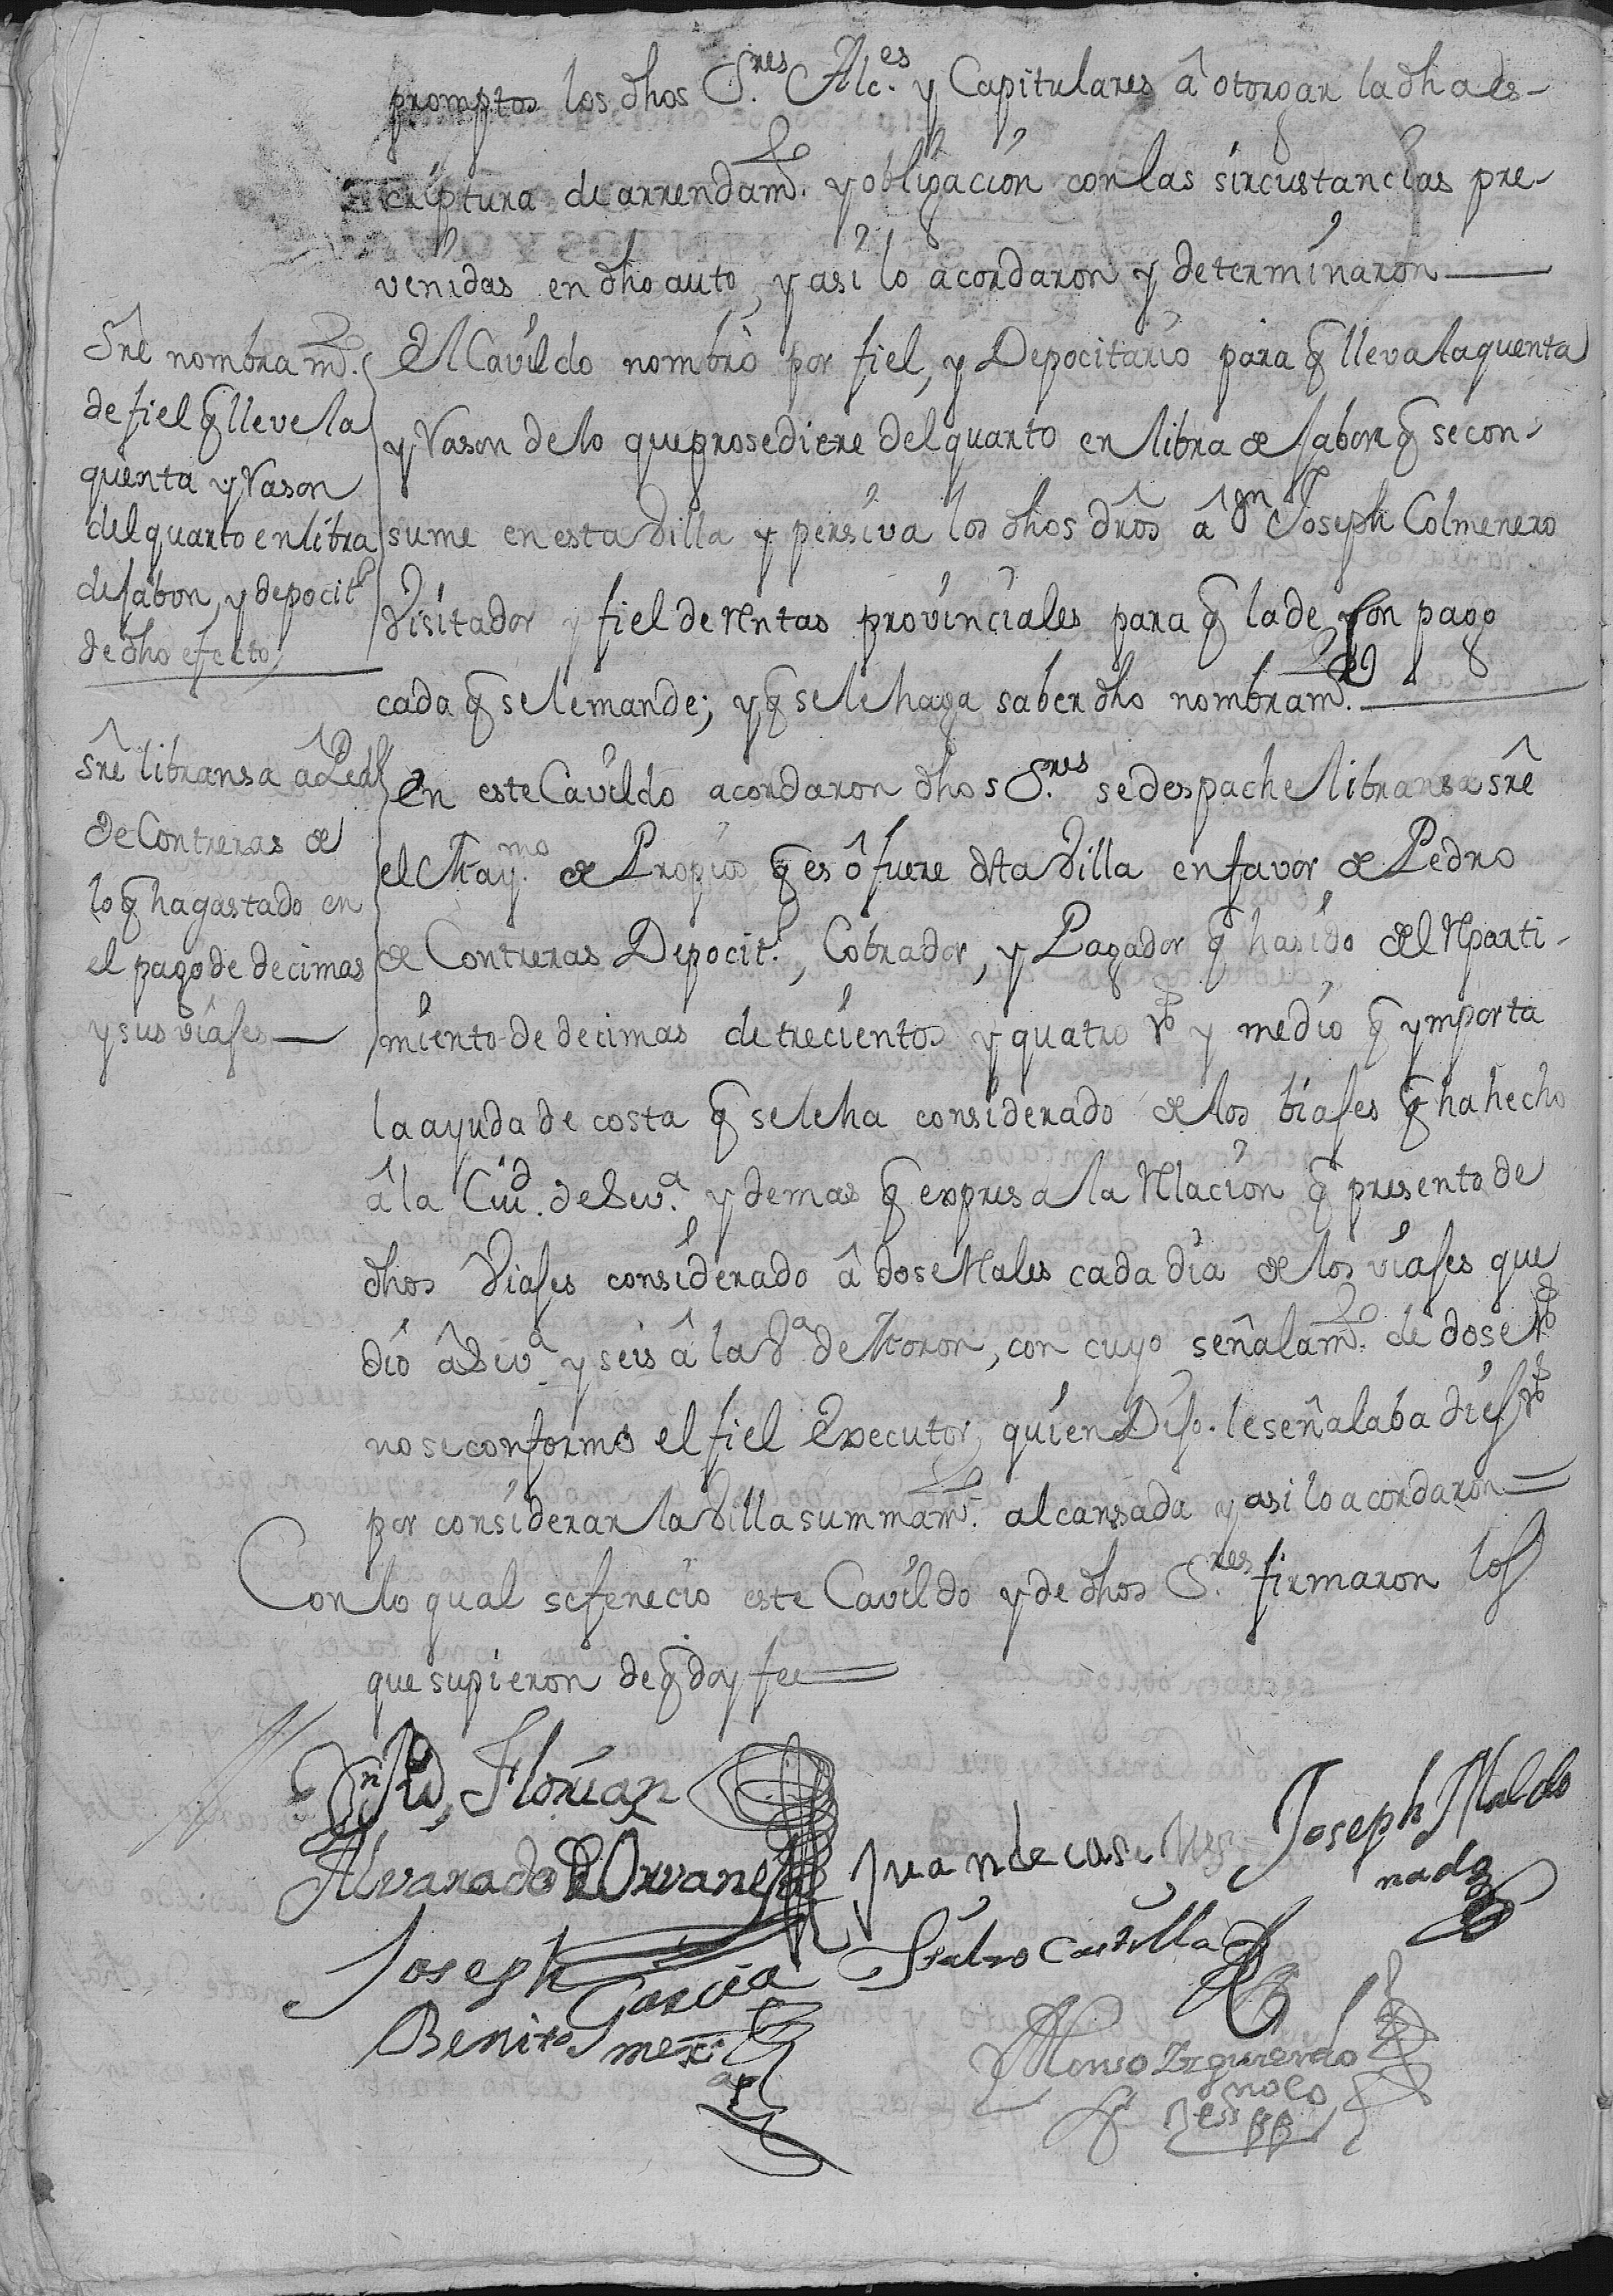 promptos los dhos S.res Alc.es y Capitulares â otorgar la dha es-
criptura de arrendam.to y obligacion con las sircustancias pre-
venidas en dho auto, y asi lo acordaron y determinaron
Sre nombram.to
de fiel q lleve la
quenta y Rason
del quarto en libra
de Jabon, y depocit.o
de dho efecto
El Cavildo nombrò por fiel, y Depocitario para q lleva la quenta
y Rason de lo que prosediere del quarto en libra de Jabon q se con-
sume en esta Villa y persiva los dhos drôs â Dn Joseph Colmenero
Visitador y fiel de Rentas provinciales para q la de, con pago
cada q se le mande; y q se le haga saber dho nombram.to
Sre libransa a Pedro
de Contreras de
lo q ha gastado en
el pago de decimas
y sus viajes
En este Cavildo acordaron dhos S.res se despache libransa srê
el May.mo de Propios q es ô fuere dsta Villa en favor de Pedro
de Contreras Depocit.o, Cobrador, y Pagador q ha sido del Rparti-
miento de decimas de trecientos y quatro rs y medio q ymporta
la ayuda de costa q se le ha considerado de los biajes q ha hecho
â la Ciu.d de Sev.a y demas q expresa la Rlacion q presento de
dhos Viajes considerado â dose Rales cada dia de los viajes que
dió â Sev.a y seis â la V.a de Moron, con cuyo señalam.to de dose Rs
no se conformó el fiel Executor, quien Dijo. le señalaba dies rs
por considerar la Villa summam.te alcansada y asi lo acordaron
Con lo qual se fenecio este Cavildo y de dhos S.res firmaron los
que supieron de q doy fee
Florian
Alvarado
Juan de
Joseph Maldo
nado
Joseph
Garcia
Castilla
Benito
Alonso Izquierdo